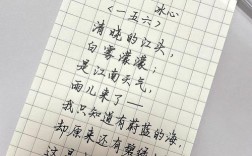 冰心
<一五六>
清晓的江头,
白雾濛濛;
是江南天气,
雨儿来了——
我只知道有蔚蓝的海,
却原来还有碧绿
这是